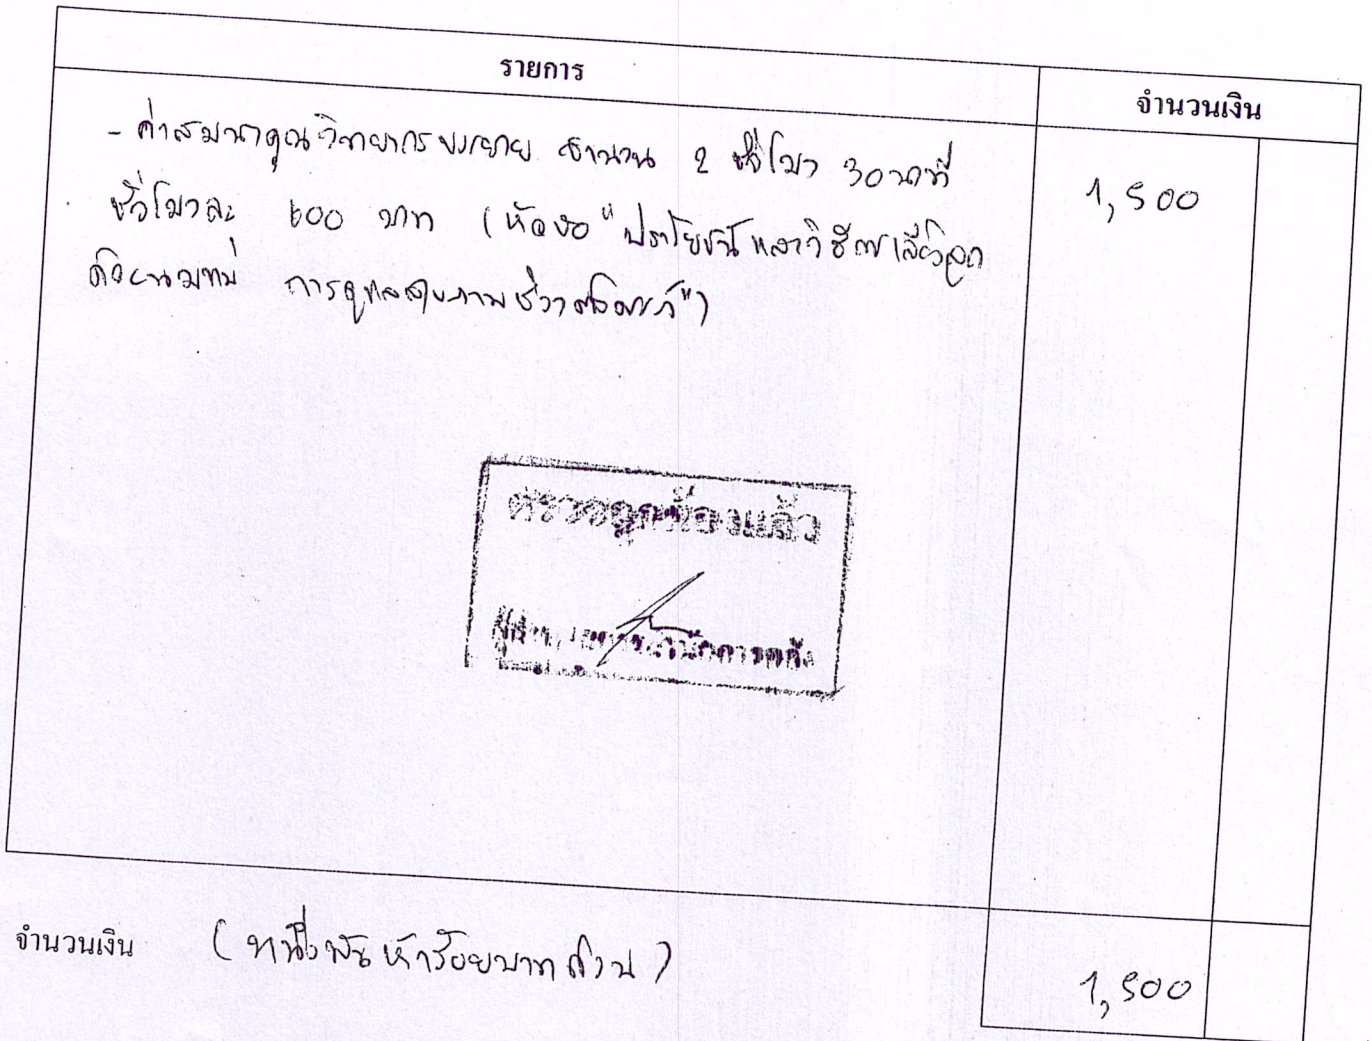 รายการ
จำนวนเงิน
- ค่าสมนาคุณวิทยากรบรรยาย จำนวน 2 ชั่วโมง 30 นาที
1,500
ชั่วโมงละ 600 บาท (หัวข้อ "ประโยชน์และวิธีการเลี้ยงลูก
ด้วยนมแม่ การดูแลสุขภาพช่วงตั้งครรภ์")
ตรวจถูกต้องแล้ว
จำนวนเงิน (หนึ่งพันห้าร้อยบาทถ้วน)
1,500